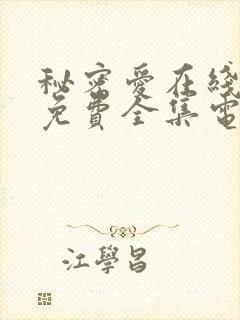 秘密愛在綫
免費全集電
江學昌